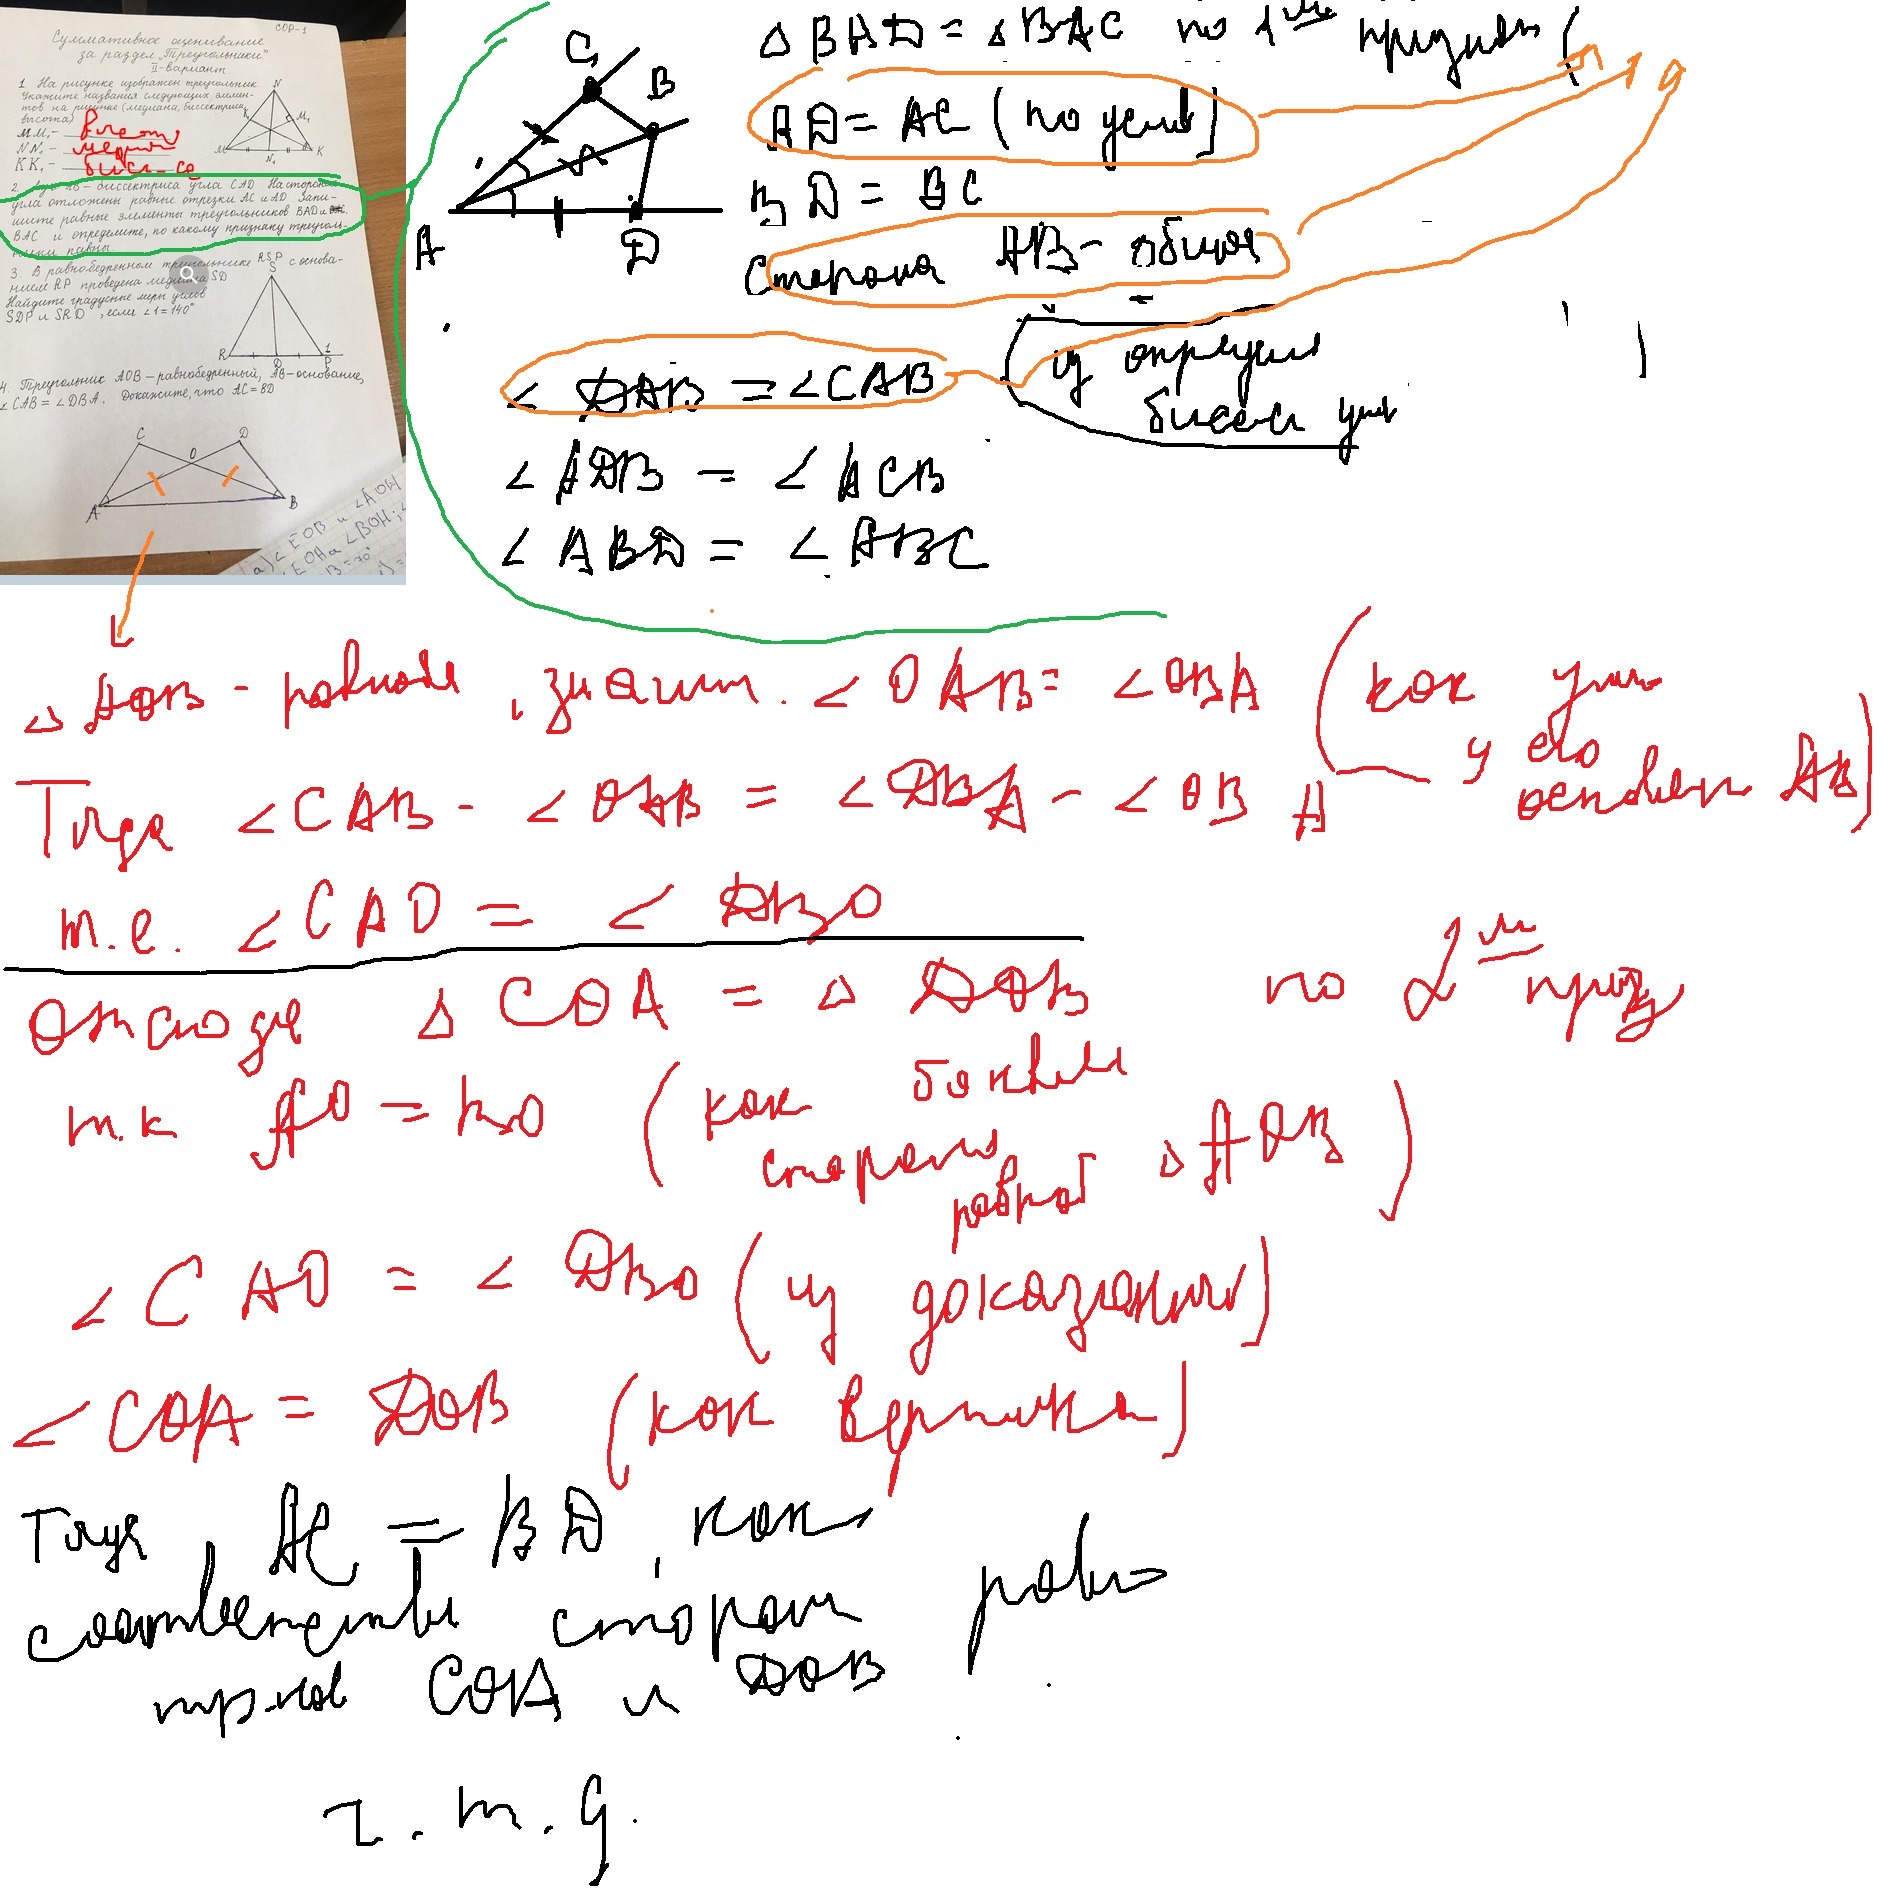 СОР-1
Суммативное оценивание
за раздел „Треугольники"
II-вариант
1. На рисунке изображен треугольник.
Укажите названия следующих элемен-
тов на рисунке (медиана, биссектриса,
высота)
MM₁ -
NN₁ -
KK₁ -
N
M₁
M
N₁
K
2. Луч AB - биссектриса угла CAD. На сторонах
угла отложены равные отрезки AC и AD. Запи-
шите равные элементы треугольников BAD и
BAC и определите, по какому признаку треуголь-
ники равны.
3. В равнобедренном треугольнике RSP с основа-
нием RP проведена медиана SD
Найдите градусные меры углов
SDP и SRD, если ∠1=140°
S
R
D
P
1
4. Треугольник AOB - равнобедренный, AB - основание,
∠CAB = ∠DBA. Докажите, что AC = BD
C
D
O
A
B
C
B
A
D
△ BAD = △ BAC по 1ᵐ
AD = AC (по усл)
BD = BC
Сторона AB - общая
∠ DAB = ∠CAB
из определ
биссек угл
∠ ADB = ∠ ACB
∠ ABD = ∠ ABC
△ AOB - равноб, значит ∠ OAB = ∠OBA (как угл
у его
основан AB)
Тогда ∠CAB - ∠OAB = ∠DBA - ∠OBA
т.е. ∠CAO = ∠ DBO
Отсюда △ COA = △ DOB по 2ᵐ приз
т.к AO = BO (как боковы
стороны
равноб △ AOB)
∠ CAO = ∠ DBO (из доказанных)
∠COA = DOB (как вертика)
Тогда, AC = BD, как
соответств сторон равно
тр-ков COA и DOB
ч.т.д.